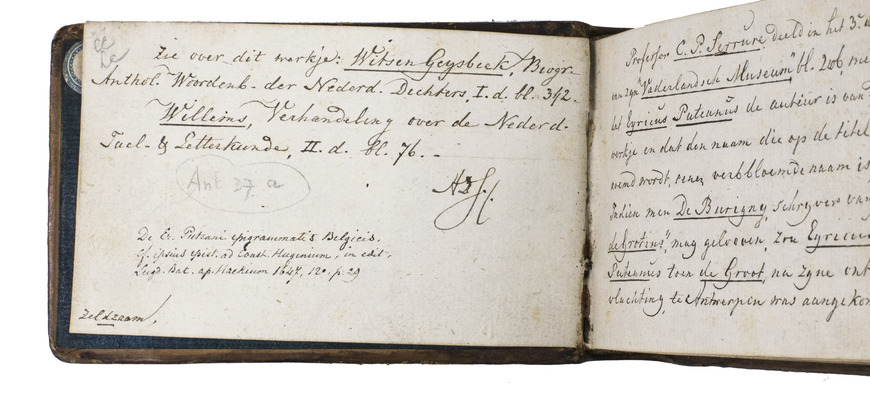 Zie over dit werkje: Witsen Geysbeek, Beogr-
Anthol. Woordenb. der Nederd. Dechters, I. d. bl. 342.
Willems, Verhandeling over de Nederd.
Tael- & Letterkunde, II. d. bl. 76. -
Ant 37 a
De Er. Puteani epigrammatis Belgicis.
cf. ipsius epist. ad Const. Hugenium, in edit.
Lugd. Bat. ap. Hackium 1647, 12o. p. 29
Zeldzaam.
Professor C. P. Serrure, deeld in het 3e
van zyn "Vaderlandsch Museum" bl. 206, me
dat Erycius Puteanus de auteur is van
werkje en dat den naam die op de titel
word, eenen verbloemde naam is
Indien men De Burigny, schryver van
de Grotius", mag gelooven, zou Erycius
Puteanus toen de Groot, na zyne ont
vluchting, te Antwerpen was aangekom